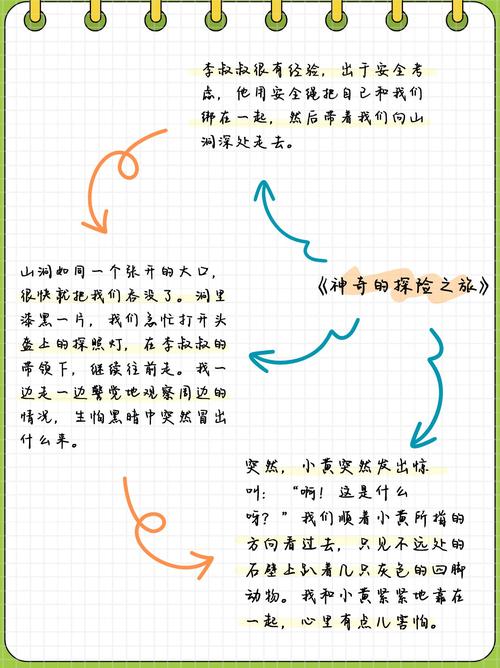 李叔叔很有经验，出于安全考
虑，他用安全绳把自己和我们
绑在一起，然后带着我们向山
洞深处走去。
《神奇的探险之旅》
山洞如同一个张开的大口，
很快就把我们吞没了。洞里
漆黑一片，我们急忙打开头
盔上的探照灯，在李叔叔的
带领下，继续往前走。我一
边走一边警觉地观察周边的
情况，生怕黑暗中突然冒出
什么来。
突然，小黄突然发出惊
叫：“啊！这是什么
呀？”我们顺着小黄所指的
方向看过去，只见不远处的
石壁上趴着几只灰色的四脚
动物。我和小黄紧紧地靠在
一起，心里有点儿害怕。